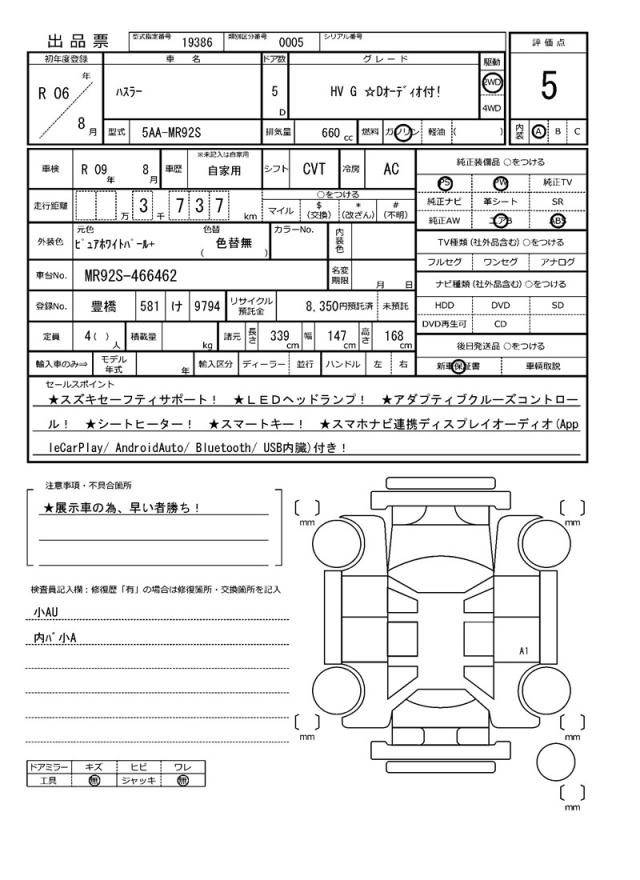 出品票 型式指定番号 19386 類別区分番号 0005 シリアル番号
評価点
5
内装 A B C
初年度登録 車名 ドア数 グレード 駆動
R 06 年 8 月
ハスラー
5 D
HV G ☆Dオーディオ付!
2WD
4WD
型式 5AA-MR92S 排気量 660 cc 燃料 ガソリン 軽油 ( )
車検 R 09 年 8 月 車歴 ※未記入は自家用 自家用 シフト CVT 冷房 AC
走行距離 万 3 千 7 3 7 km
○をつける
マイル $(交換) *(改ざん) #(不明)
外装色 元色 ピュアホワイトパール+ 色替 ( 色替無 ) カラーNo. 内装色
車台No. MR92S-466462 名変期限 月 日
登録No. 豊橋 581 け 9794 リサイクル預託金 8,350円預託済 未預託
定員 4( ) 人 積載量 kg 諸元 長さ 339 cm 幅 147 cm 高さ 168 cm
輸入車のみ⇒ モデル年式 年 輸入区分 ディーラー 並行 ハンドル 左 右
純正装備品 ○をつける
PS PW 純正TV
純正ナビ 革シート SR
純正AW エアB ABS
TV種類 (社外品含む) ○をつける
フルセグ ワンセグ アナログ
ナビ種類 (社外品含む) ○をつける
HDD DVD SD
DVD再生可 CD
後日発送品 ○をつける
新車保証書 車輌取説
セールスポイント
★スズキセーフティサポート! ★LEDヘッドランプ! ★アダプティブクルーズコントロー
ル! ★シートヒーター! ★スマートキー! ★スマホナビ連携ディスプレイオーディオ(App
leCarPlay/ AndroidAuto/ Bluetooth/ USB内臓)付き!
注意事項・不具合箇所
★展示車の為、早い者勝ち!
検査員記入欄：修復歴「有」の場合は修復箇所・交換箇所を記入
小AU
内バ小A
ドアミラー キズ ヒビ ワレ
工具 無 ジャッキ 無
( ) mm
( ) mm
A1
( ) mm
( ) mm
( ) mm